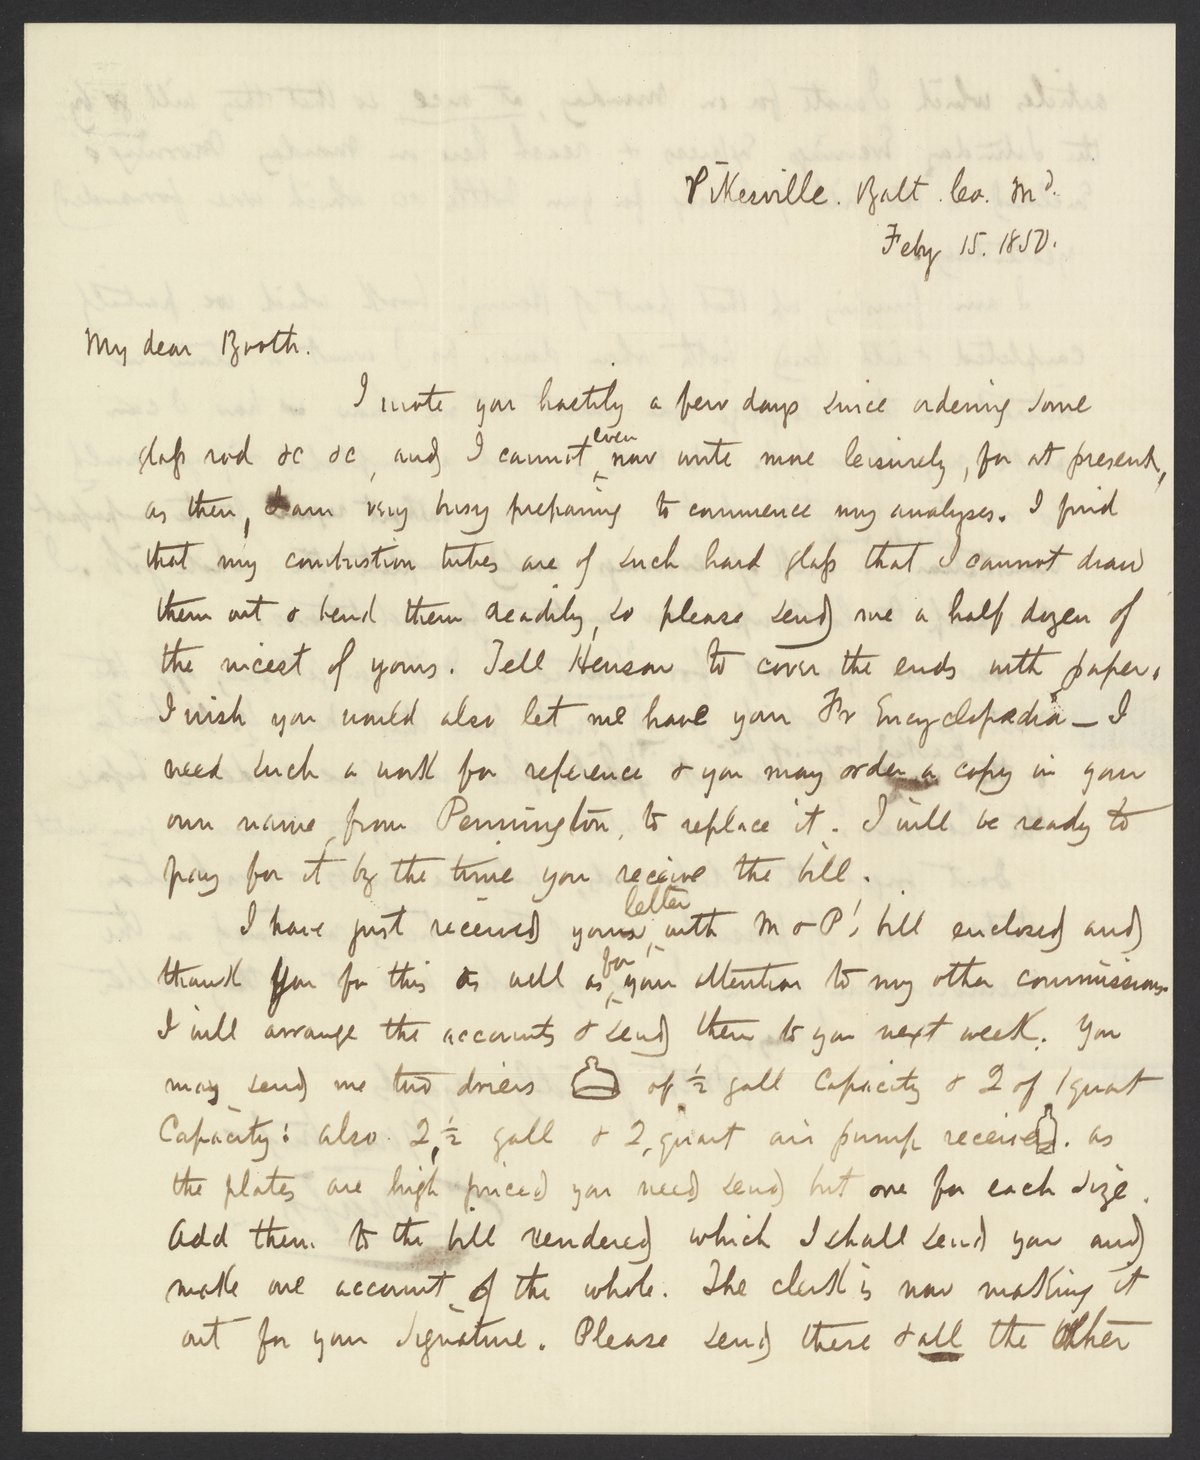 Pikesville. Balt. Co. Md.
Feby 15. 1850.
My dear Booth.
I wrote you hastily a few days since ordering some
glass rod &c &c, and I cannot even now write more leisurely, for at present,
as then, I am very busy preparing to commence my analyses. I find
that my combustion tubes are of such hard glass that I cannot draw
them out & bend them readily, so please send me a half dozen of
the nicest of yours. Tell Henson to cover the ends with paper.
I wish you would also let me have your Fr Encyclopædia — I
need such a work for reference & you may order a copy in your
own name, from Pennington, to replace it. I will be ready to
pay for it by the time you receive the bill.
I have just received your letter with M & P's bill enclosed and
thank you for this as well as for your attention to my other commissions.
I will arrange the accounts & send them to you next week. You
may send me two driers of ½ gall capacity & 2 of 1 quart
Capacity: also 2, ½ gall & 2, quart air pump receivers. as
the plates are high priced you need send but one for each size.
Add them to the bill rendered which I shall send you and
make one account of the whole. The clerk is now making it
out for your signature. Please send these & all the other